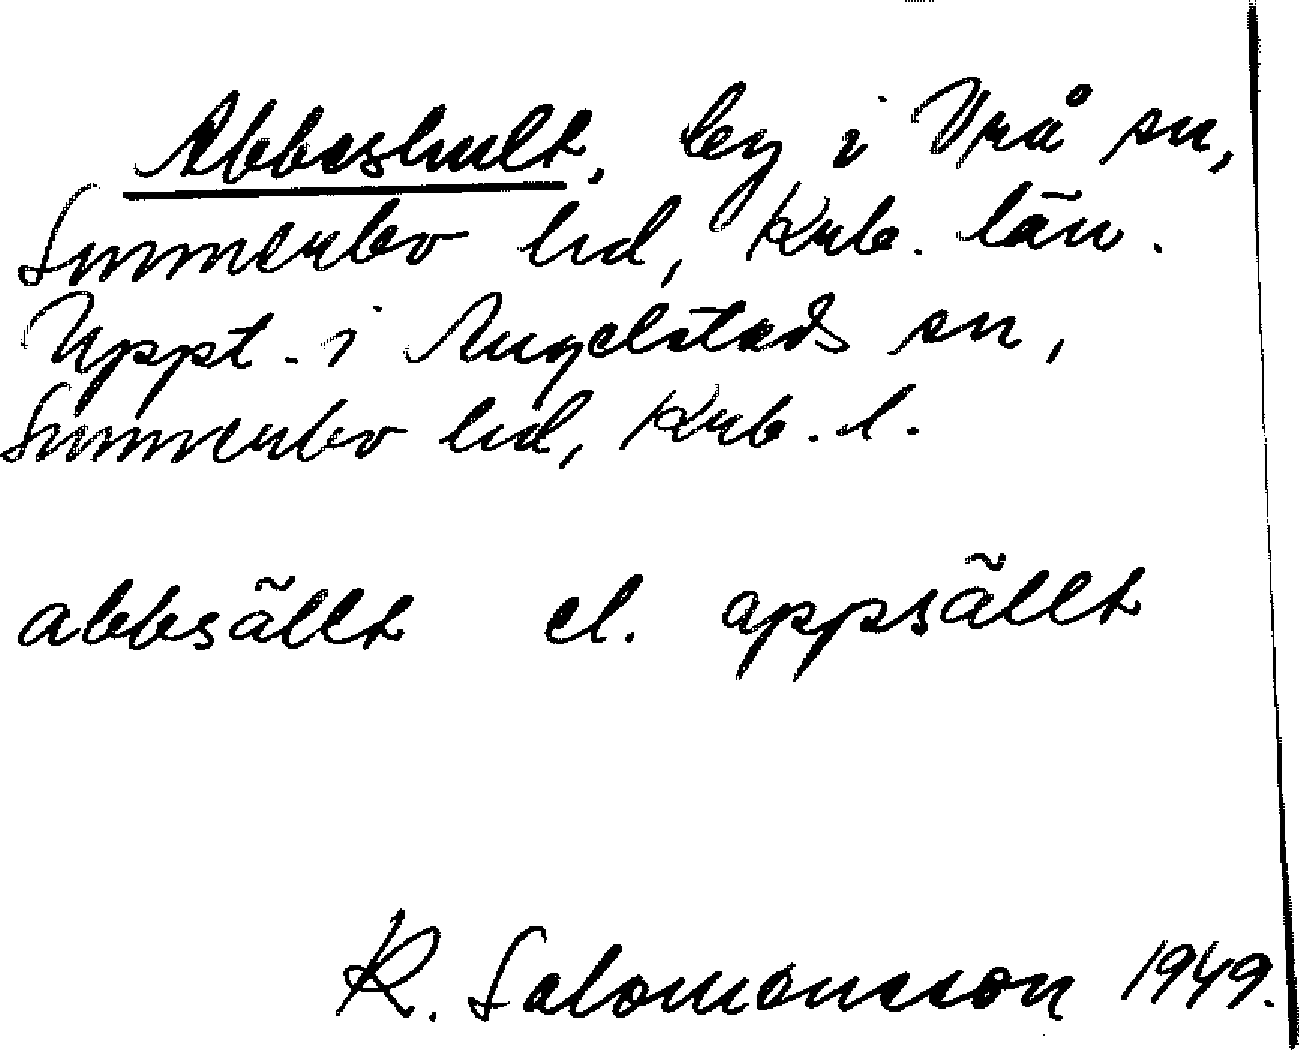 Abbeshult, by i Vrå sn,
Sunnerbo hd, Krb. län.
Uppt. i Angelstads sn,
Sunnerbo hd, Krb. l.
abbsãllt el. appsãllt
R. Salomonsson 1949.